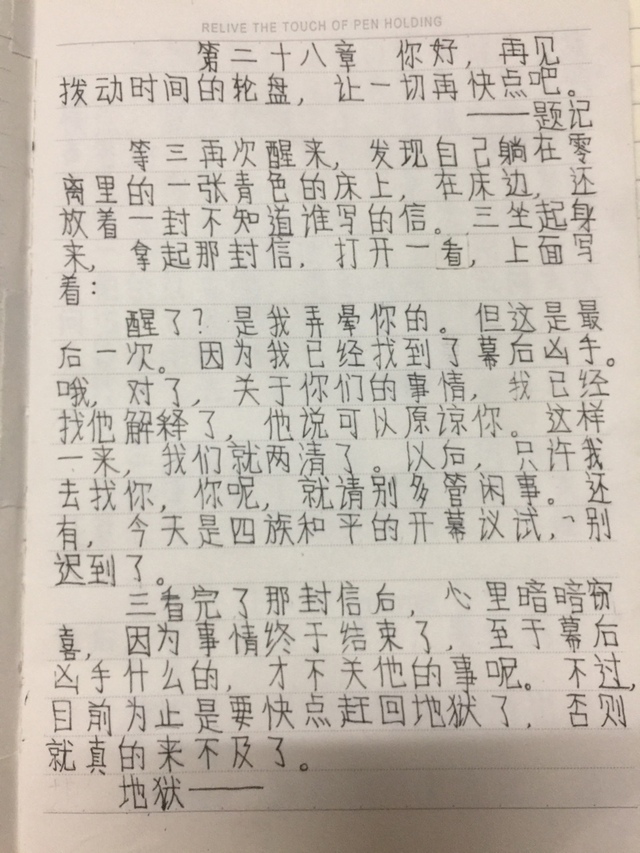 RELIVE THE TOUCH OF PEN HOLDING
第二十八章 你好，再见
拨动时间的轮盘，让一切再快点吧。
——题记
等三再次醒来，发现自己躺在零
离里的一张青色的床上，在床边，还
放着一封不知道谁写的信。三坐起身
来，拿起那封信，打开一看，上面写
着：
醒了？是我弄晕你的。但这是最
后一次。因为我已经找到了幕后凶手。
哦，对了，关于你们的事情，我已经
找他解释了，他说可以原谅你。这样
一来，我们就两清了。以后，只许我
去找你，你呢，就请别多管闲事。还
有，今天是四族和平的开幕议试，别
迟到了。
三看完了那封信后，心里暗暗窃
喜，因为事情终于结束了，至于幕后
凶手什么的，才不关他的事呢。不过，
目前为止是要快点赶回地狱了，否则
就真的来不及了。
地狱——